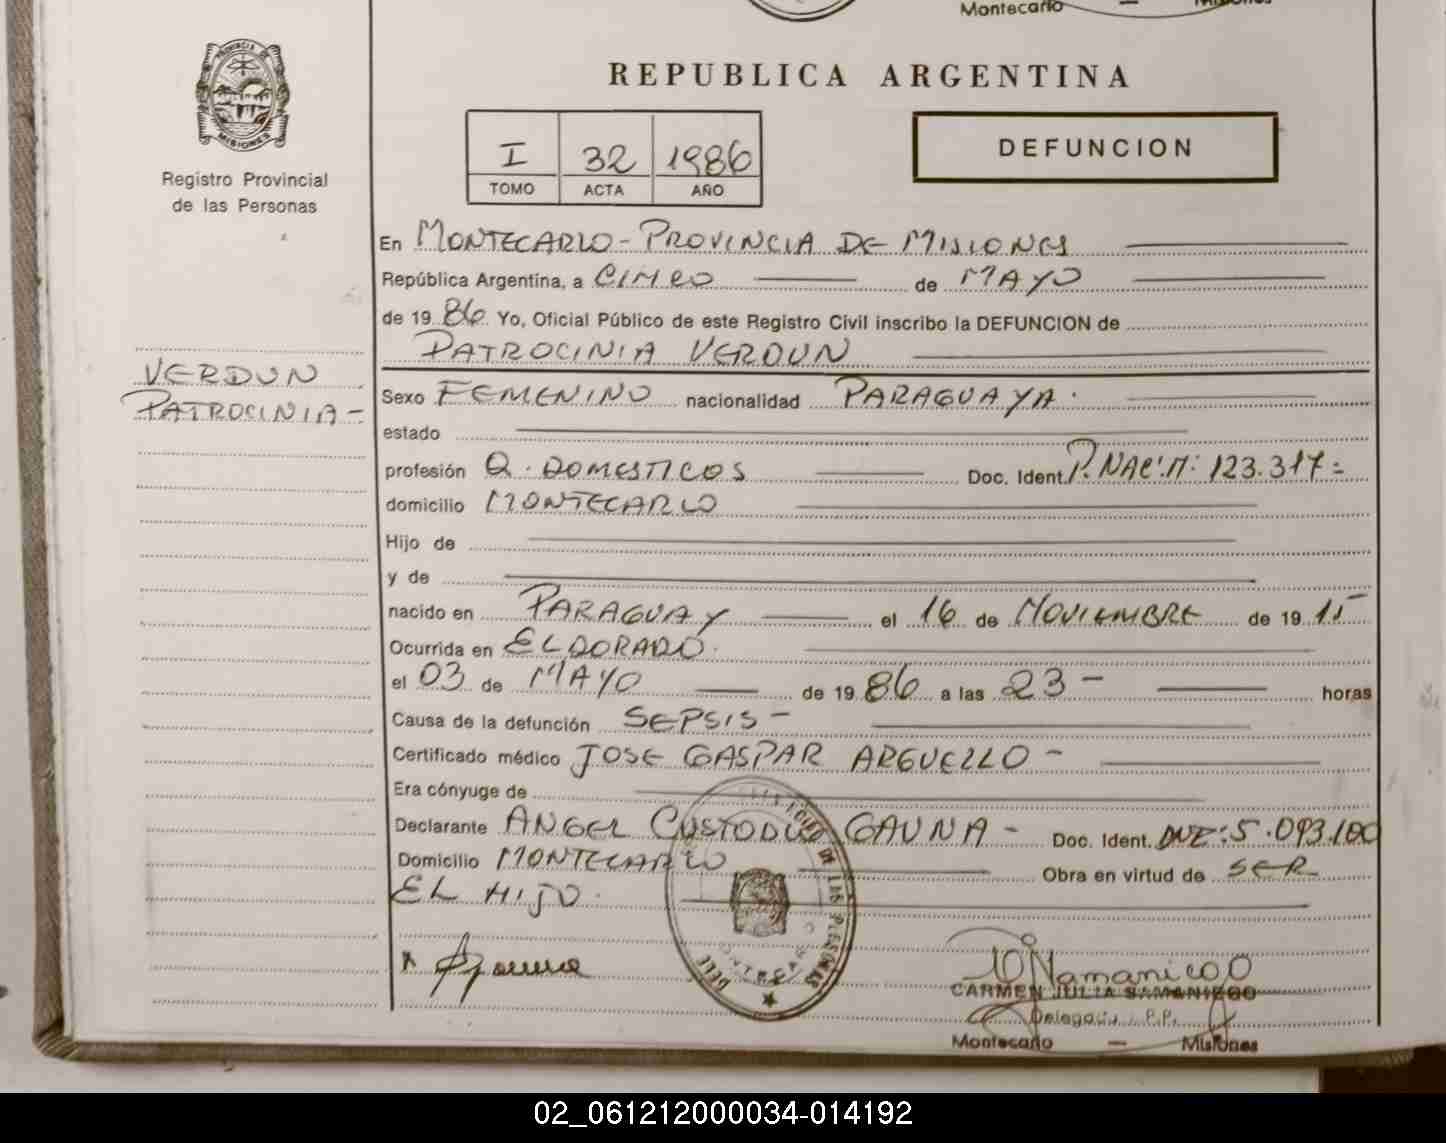 Montecarlo — Misiones
PROVINCIA DE
MISIONES
Registro Provincial
de las Personas
REPUBLICA ARGENTINA
I 32 1986
TOMO ACTA AÑO
DEFUNCION
En MONTECARLO - PROVINCIA DE MISIONES
República Argentina, a CINCO de MAYO
de 1986 Yo, Oficial Público de este Registro Civil inscribo la DEFUNCION de
PATROCINIA VERDUN
VERDUN
PATROCINIA -
Sexo FEMENINO nacionalidad PARAGUAYA.
estado
profesión Q. DOMESTICOS Doc. Ident. P. NAC. N: 123.317=
domicilio MONTECARLO
Hijo de
y de
nacido en PARAGUAY el 16 de NOVIEMBRE de 1915
Ocurrida en ELDORADO.
el 03 de MAYO de 1986 a las 23 - horas
Causa de la defunción SEPSIS -
Certificado médico JOSE GASPAR ARGUELLO -
Era cónyuge de
Declarante ANGEL CUSTODIO GAUNA - Doc. Ident. DNI: 5.093.100
Domicilio MONTECARLO Obra en virtud de SER
EL HIJO.
CARMEN JULIA SAMANIEGO
Delegada R.P.
Montecarlo — Misiones
02_061212000034-014192